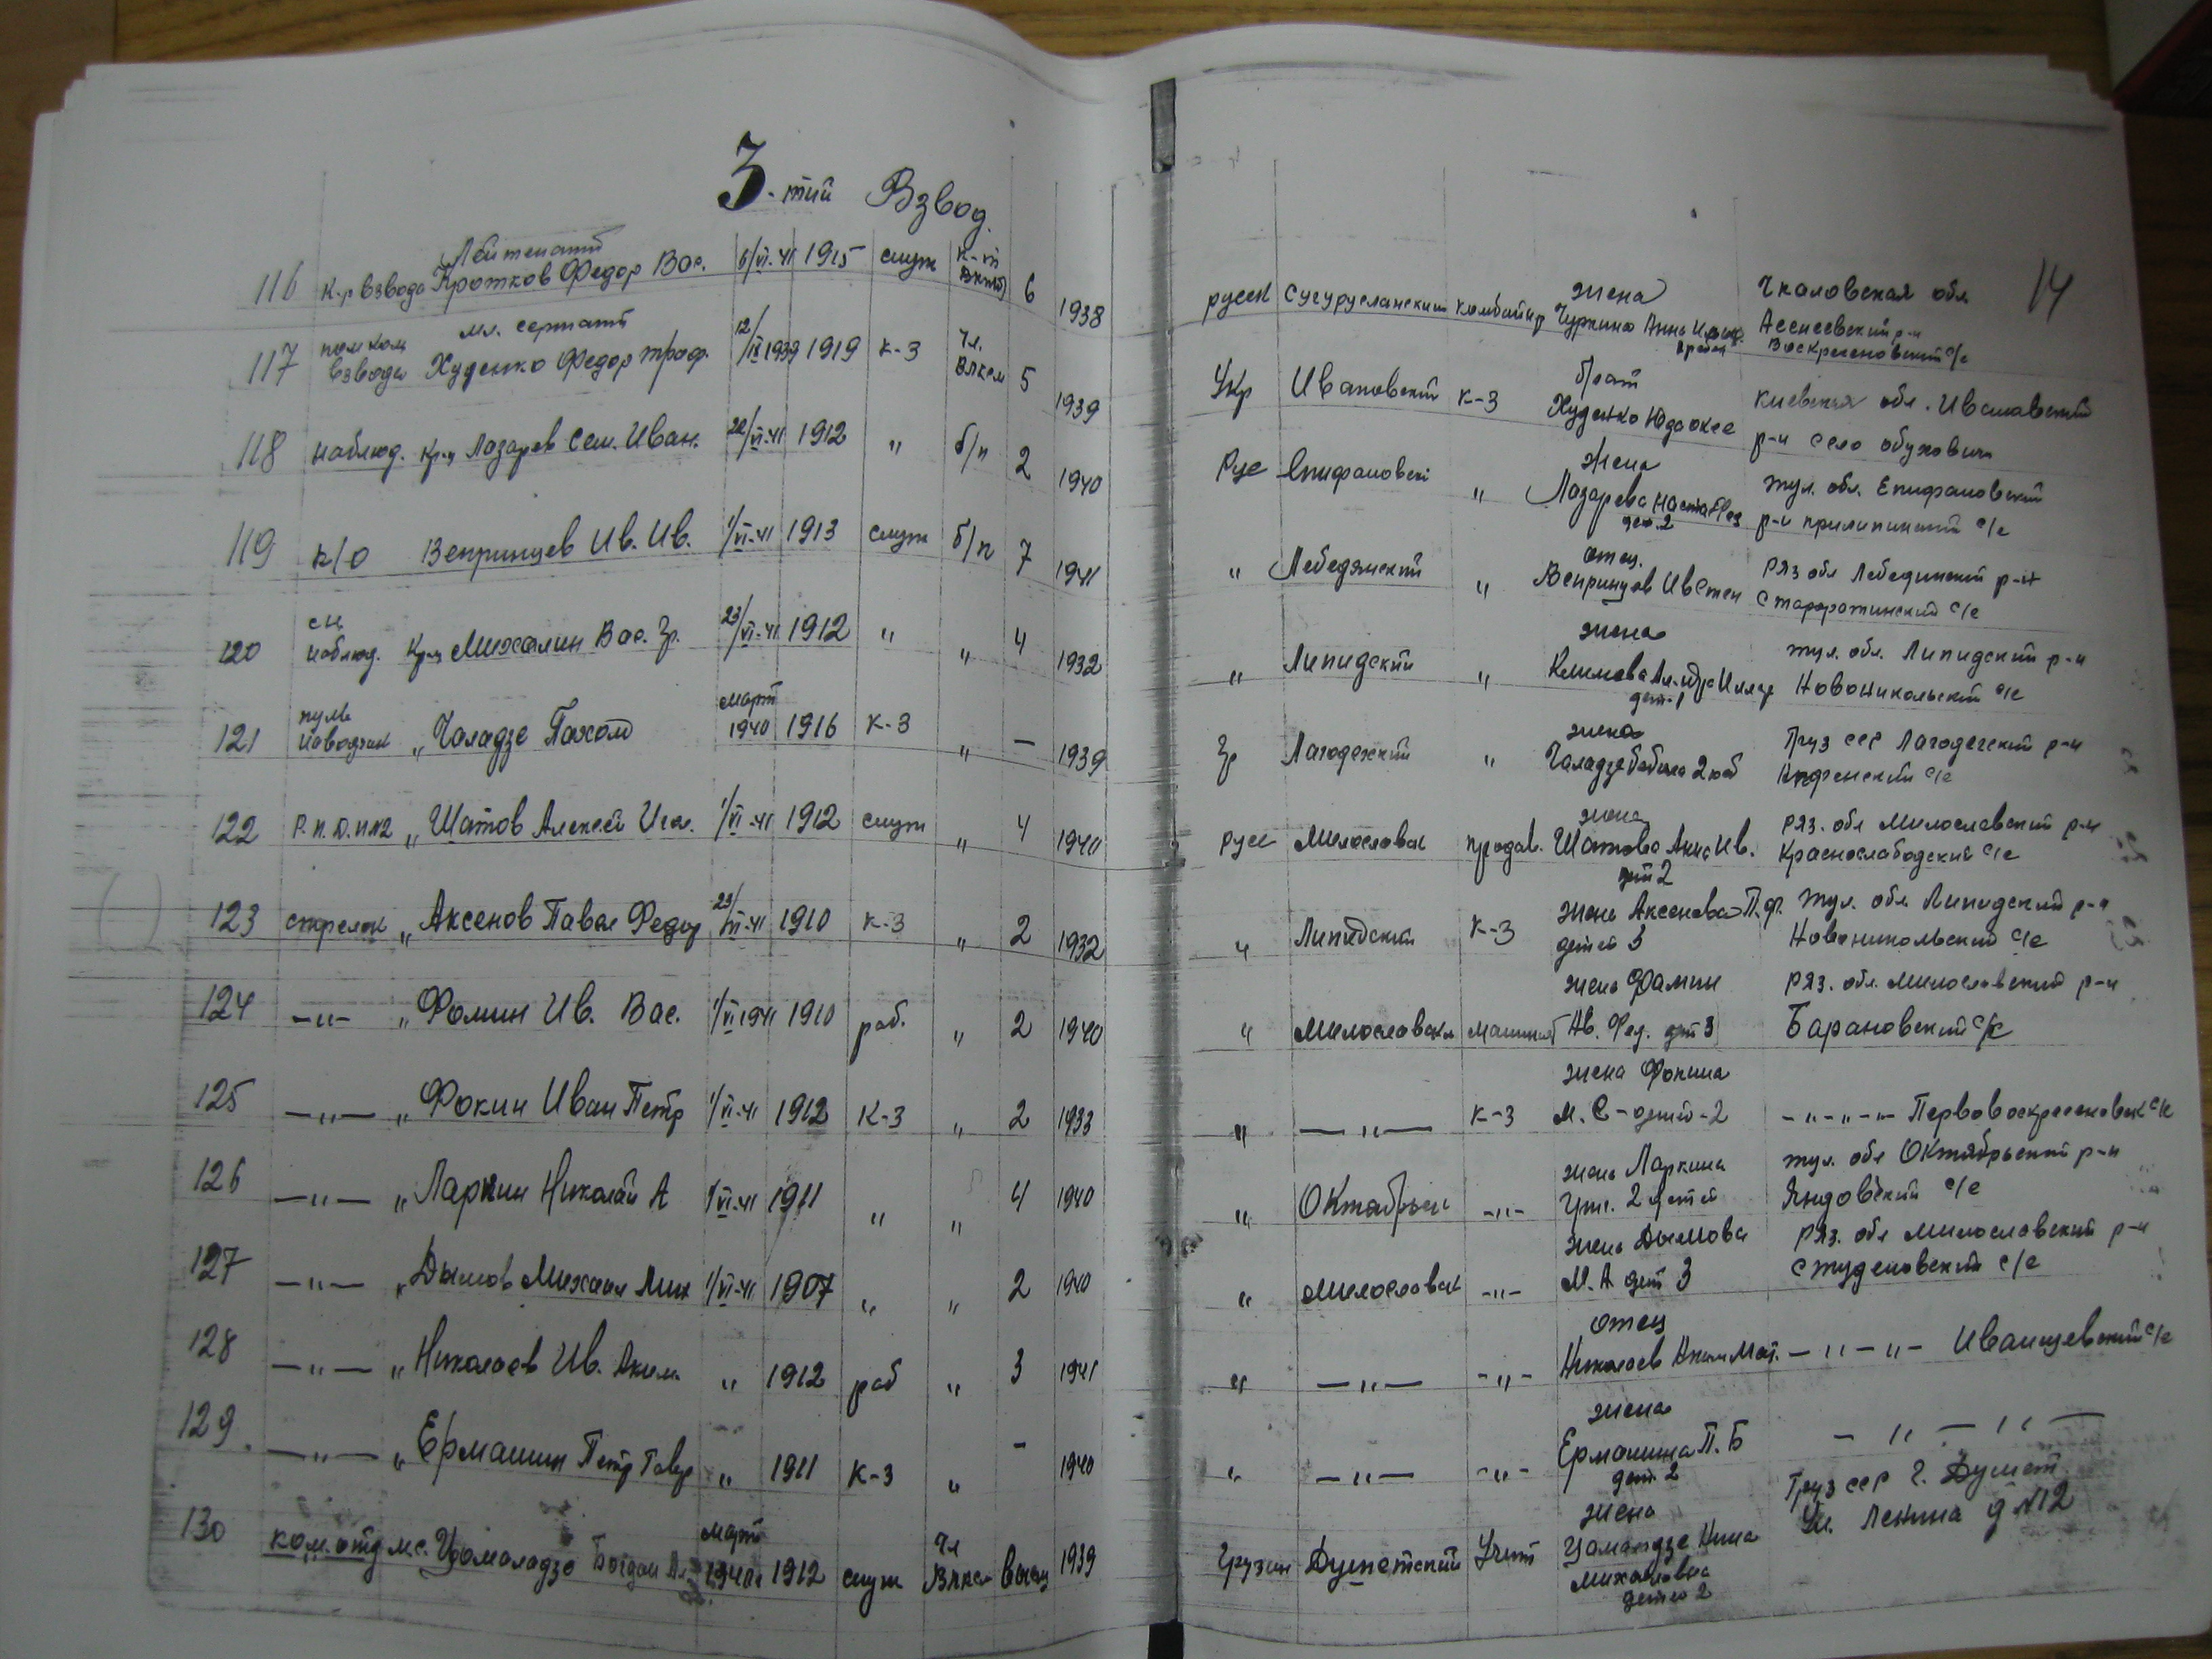 3-тий Взвод.
14
Лейтенант
116 к-р взвода Кротков Федор Вас. 6/VI-41 1915 служ к-т ВКПб 6 1938
русск комбайнер жена Чуркина Анна
Чкаловская обл.
Воскресеновский с/с
117 пом ком взвода мл. сержант Худенко Федор Троф. 12/IX 1939 1919 к-з Чл. ВЛКСМ 5 1939
Укр Ивановский к-з брат Худенко
Киевская обл. Ивановский
р-н село Обуховичи
118 наблюд. кр-ц Лазарев Сем. Иван. 22/VI-41 1912 " б/п 2 1940
Рус Епифановск " жена Лазарева Наста дет. 2
Тул. обл. Епифановский
р-н с/с
119 к/о Вепринцев Ив. Ив. 1/VI-41 1913 служ б/п 7 1941
" Лебедянский " отец. Вепринцев Ив Степ
Ряз обл Лебединский р-н
с/с
120 наблюд. кр-ц Михалин Вас. Гр. 23/VI-41 1912 " " 4 1932
" Липидский " жена Климова дет-1
Тул. обл. Липидский р-н
Новоникольский с/с
121 пуль наводчик " Чаладзе Пахом март 1940 1916 к-з " — 1939
Гр Лагодехский " жена Чаладзе
Груз сср Лагодехский р-н
с/с
122 Р.П.Д. №2 " Шатов Алексей Игн. 1/VI-41 1912 служ " 4 1940
русс Милославск продав. жена Шатова Анис Ив. дет 2
Ряз. обл Милославский р-н
Краснослабодский с/с
123 стрелок " Аксенов Павел Федор 23/VI-41 1910 к-з " 2 1932
" Липидский к-з жена Аксенова П.Ф. детей 3
Тул. обл Липидский р-н
Новоникольский с/с
124 —"— " Фомин Ив. Вас. 1/VI 1941 1910 раб. " 2 1940
" Милославск машинист жена Фомин Ав. Фед. дет 3
Ряз. обл. Милославский р-н
Барановский с/с
125 —"— " Фокин Иван Петр 1/VI-41 1912 к-з " 2 1933
" —"— к-з жена Фокина М. С - детей-2
-"-"-"- Первовоскресеновск с/с
126 —"— " Ларкин Николай А 1/VI-41 1911 " " 4 1940
" Октябрьск -"- жена Ларкина 2 детей
Тул. обл Октябрьский р-н
Яндовский с/с
127 —"— " Дымов Михаил Мих 1/VI-41 1907 " " 2 1940
" Милославск -"- жена Дымова М. А дет 3
Ряз. обл Милославский р-н
Студеновский с/с
128 —"— " Николаев Ив. Аким. " 1912 раб " 3 1941
" —"— -"- отец Николаев Аким Мат.
—"—"— с/с
129. —"— " Ермашин Петр Гавр " 1911 к-з " - 1940
" —"— -"- жена Ермашина П. Б дет. 2
— " — " —
130 ком. отд м.с. Цамаладзе март 1940г 1912 служ Чл ВЛКСМ высш 1939
Грузин Душетский Учит жена Нина Михайловна детей 2
Груз сср г. Душет
Ул. Ленина д №12